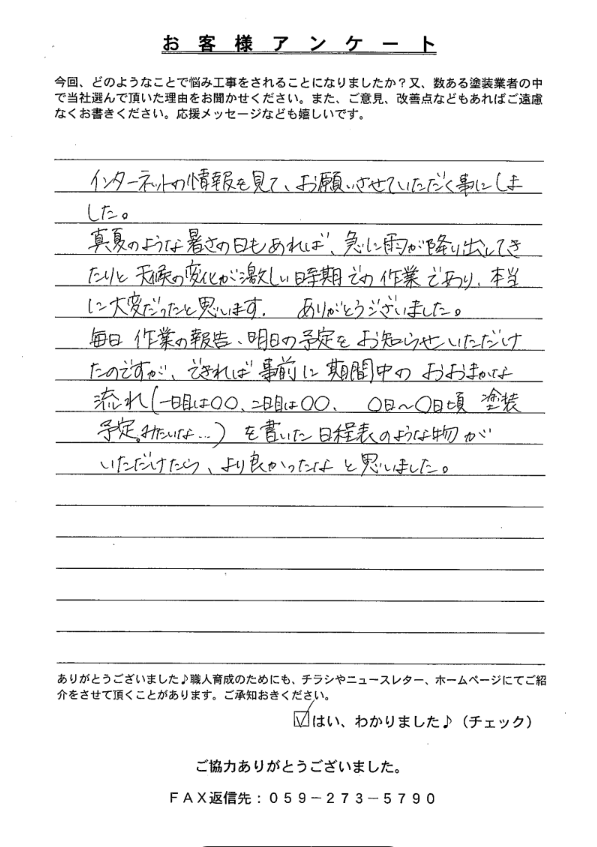 お客様アンケート
今回、どのようなことで悩み工事をされることになりましたか？又、数ある塗装業者の中
で当社選んで頂いた理由をお聞かせください。また、ご意見、改善点などもあればご遠慮
なくお書きください。応援メッセージなども嬉しいです。
インターネットの情報を見て、お願いさせていただく事にしま
した。
真夏のような暑さの日もあれば、急に雨が降り出してき
たりと天候の変化が激しい時期での作業であり、本当
に大変だったと思います. ありがとうございました。
毎日 作業の報告、明日の予定を お知らせいただけ
たのですが、できれば 事前に 期間中の おおまかな
流れ(一日目は〇〇、二日目は〇〇、 〇日～〇日頃 塗装
予定。みたいな…) を書いた日程表のような物が
いただけたら、より良かったなと思いました。
ありがとうございました♪職人育成のためにも、チラシやニュースレター、ホームページにてご紹
介をさせて頂くことがあります。ご承知おきください。
☑はい、わかりました♪（チェック）
ご協力ありがとうございました。
ＦＡＸ返信先：０５９－２７３－５７９０